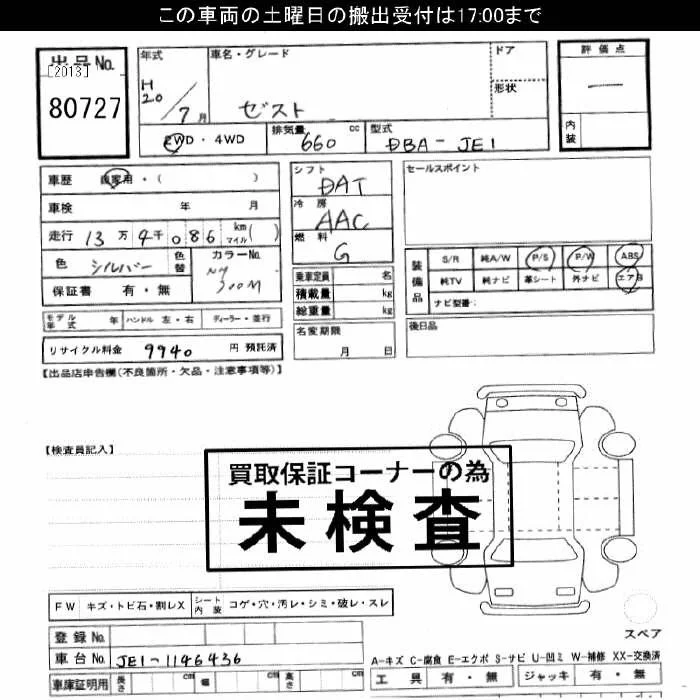 この車両の土曜日の搬出受付は17:00まで
出品No.
[2013]
80727
年式
H20/7月
車名・グレード
ゼスト
ドア
形状
評価点
内装
2WD・4WD
排気量
660 cc
型式
DBA-JE1
車歴 自家用・( )
車検 年 月
走行 13万4千086 km( ) マイル
色 シルバー 色替
カラーNo.
NH
700M
保証書 有・無
モデル年式 年 ハンドル 左・右 ディーラー・並行
リサイクル料金 9940 円 預託済
シフト
DAT
冷房
AAC
燃料
G
乗車定員 名
積載量 kg
総重量 kg
名変期限
月 日
セールスポイント
装備品
S/R 純A/W P/S P/W ABS
純TV 純ナビ 革シート 外ナビ エアB
ナビ型番:
後日品
【出品店申告欄(不良箇所・欠品・注意事項等)】
【検査員記入】
買取保証コーナーの為
未検査
FW キズ・トビ石・割レX シート内装 コゲ・穴・汚レ・シミ・破レ・スレ
登録No.
車台No. JE1-1146436
車庫証明用 長さ cm 幅 cm 高さ cm
スペア
A-キズ C-腐食 E-エクボ S-サビ U-凹ミ W-補修 XX-交換済
工具 有・無 ジャッキ 有・無